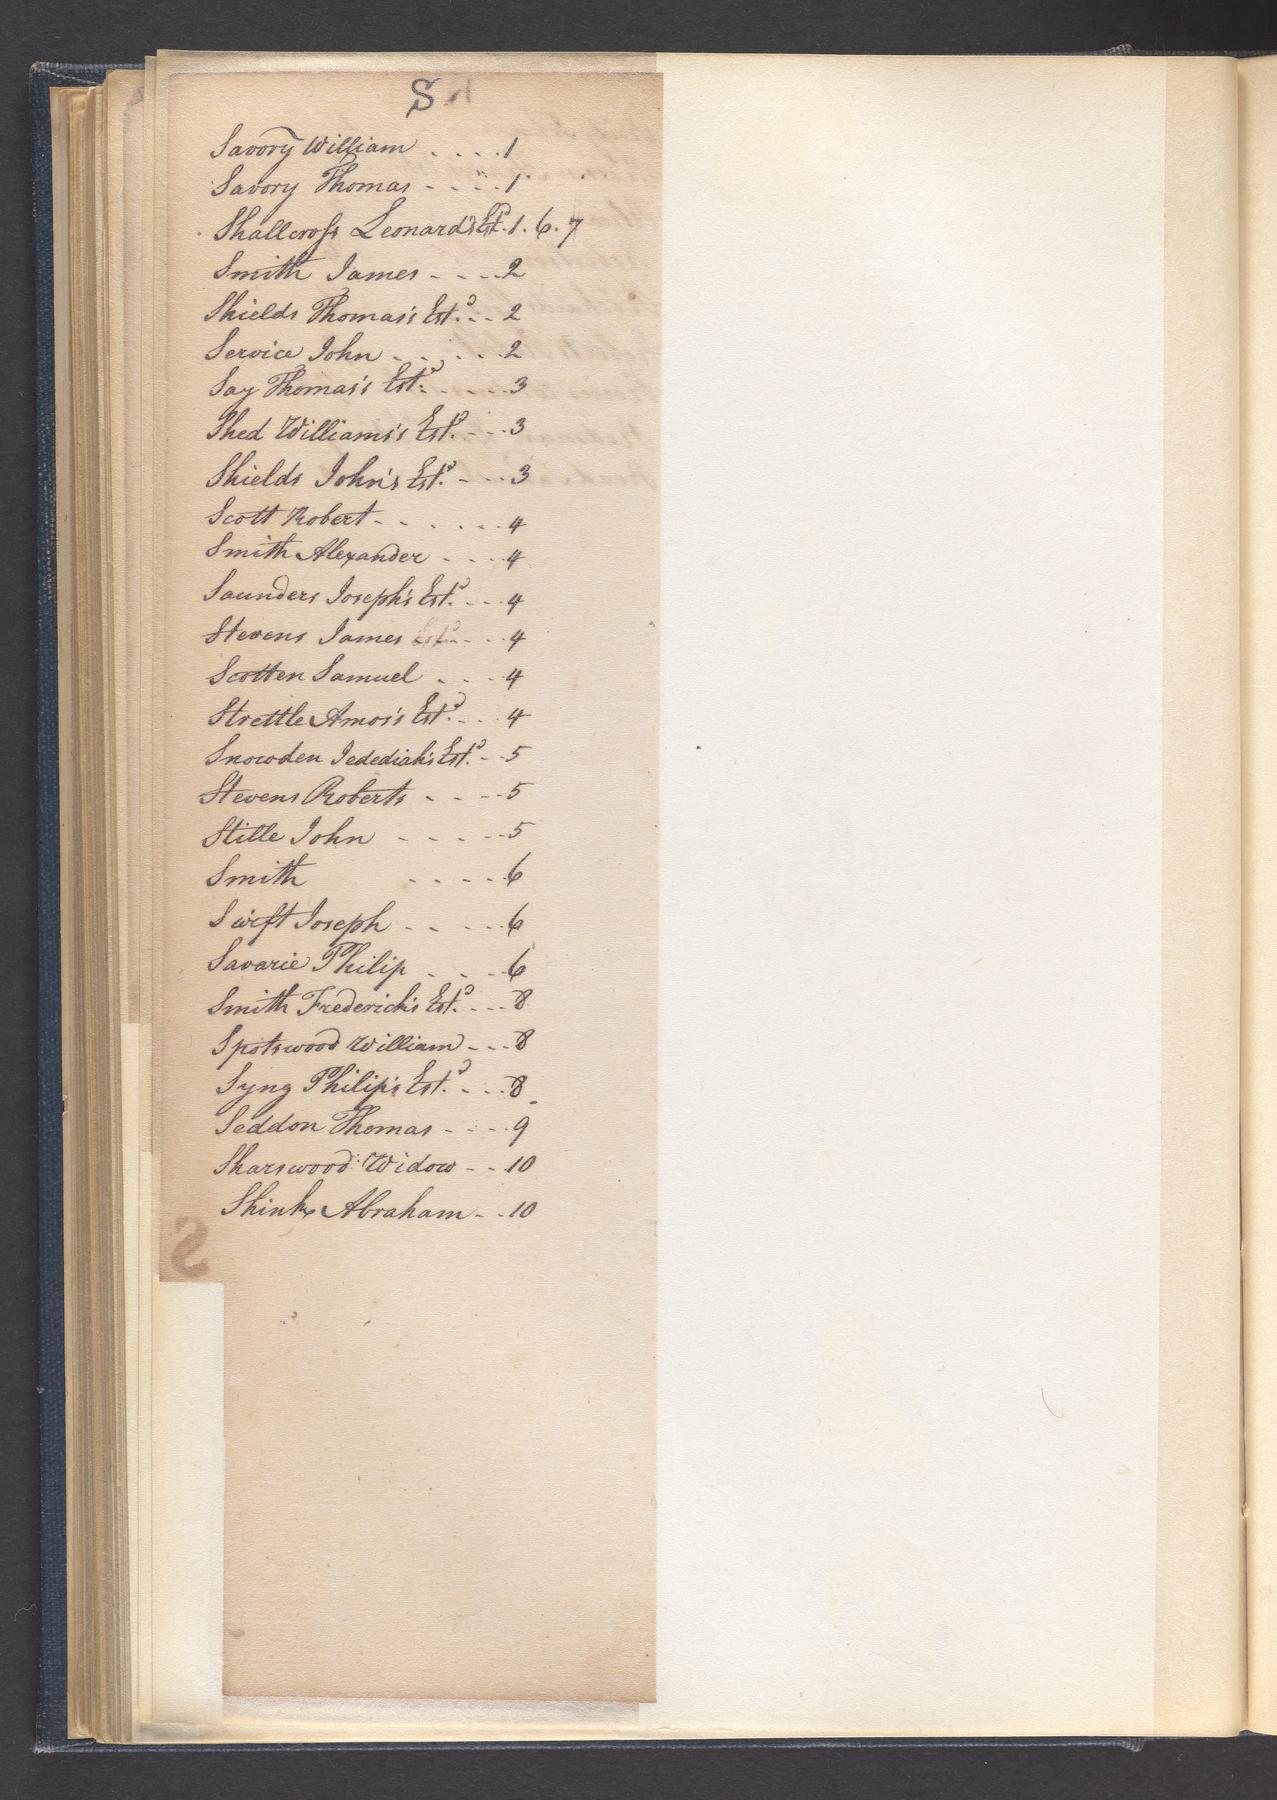 S
Savory William . . . . 1
Savory Thomas - . . . 1
Shallcross Leonard's Estd. 1. 6. 7
Smith James - - - - 2
Shields Thomas's Estd. - - 2
Service John - . . . . . 2
Say Thomas's Estd. - . . . 3
Shed Williams's Estd. - - - 3
Shields John's Estd. - - - - 3
Scott Robert - . . . . . . 4
Smith Alexander - . . . 4
Saunders Joseph's Estd. - - - 4
Stevens James - - - 4
Scotten Samuel . . . 4
Strettle Amos's Estd. - . . 4
Snowden Jedediah's Estd. - - 5
Stevens Roberts - - - - 5
Stille John - - - - - 5
Smith - - - - - 6
Swift Joseph - - - - - 6
Savarie Philip - - - - 6
Smith Frederick's Estd. - - - 8
Spotswood William - - - 8
Syng Philip's Estd. - - - - 8
Seddon Thomas - - - - 9
Sharswood Widow - - 10
Shinks Abraham - - 10
S